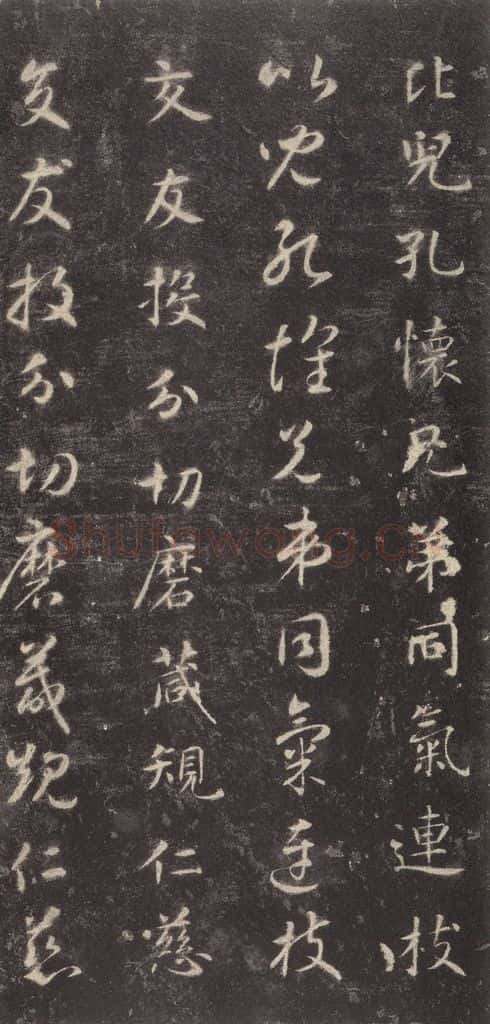 比兒孔懷兄弟同氣連枝
比兒孔懷兄弟同氣連枝
交友投分切磨箴規仁慈
交友投分切磨箴規仁慈
Shufawang.cn